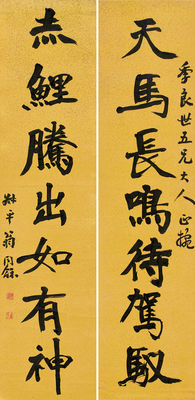 季良世五兄大人正腕
天馬長鳴待駕馭
赤鯉騰出如有神
叔平翁同龢